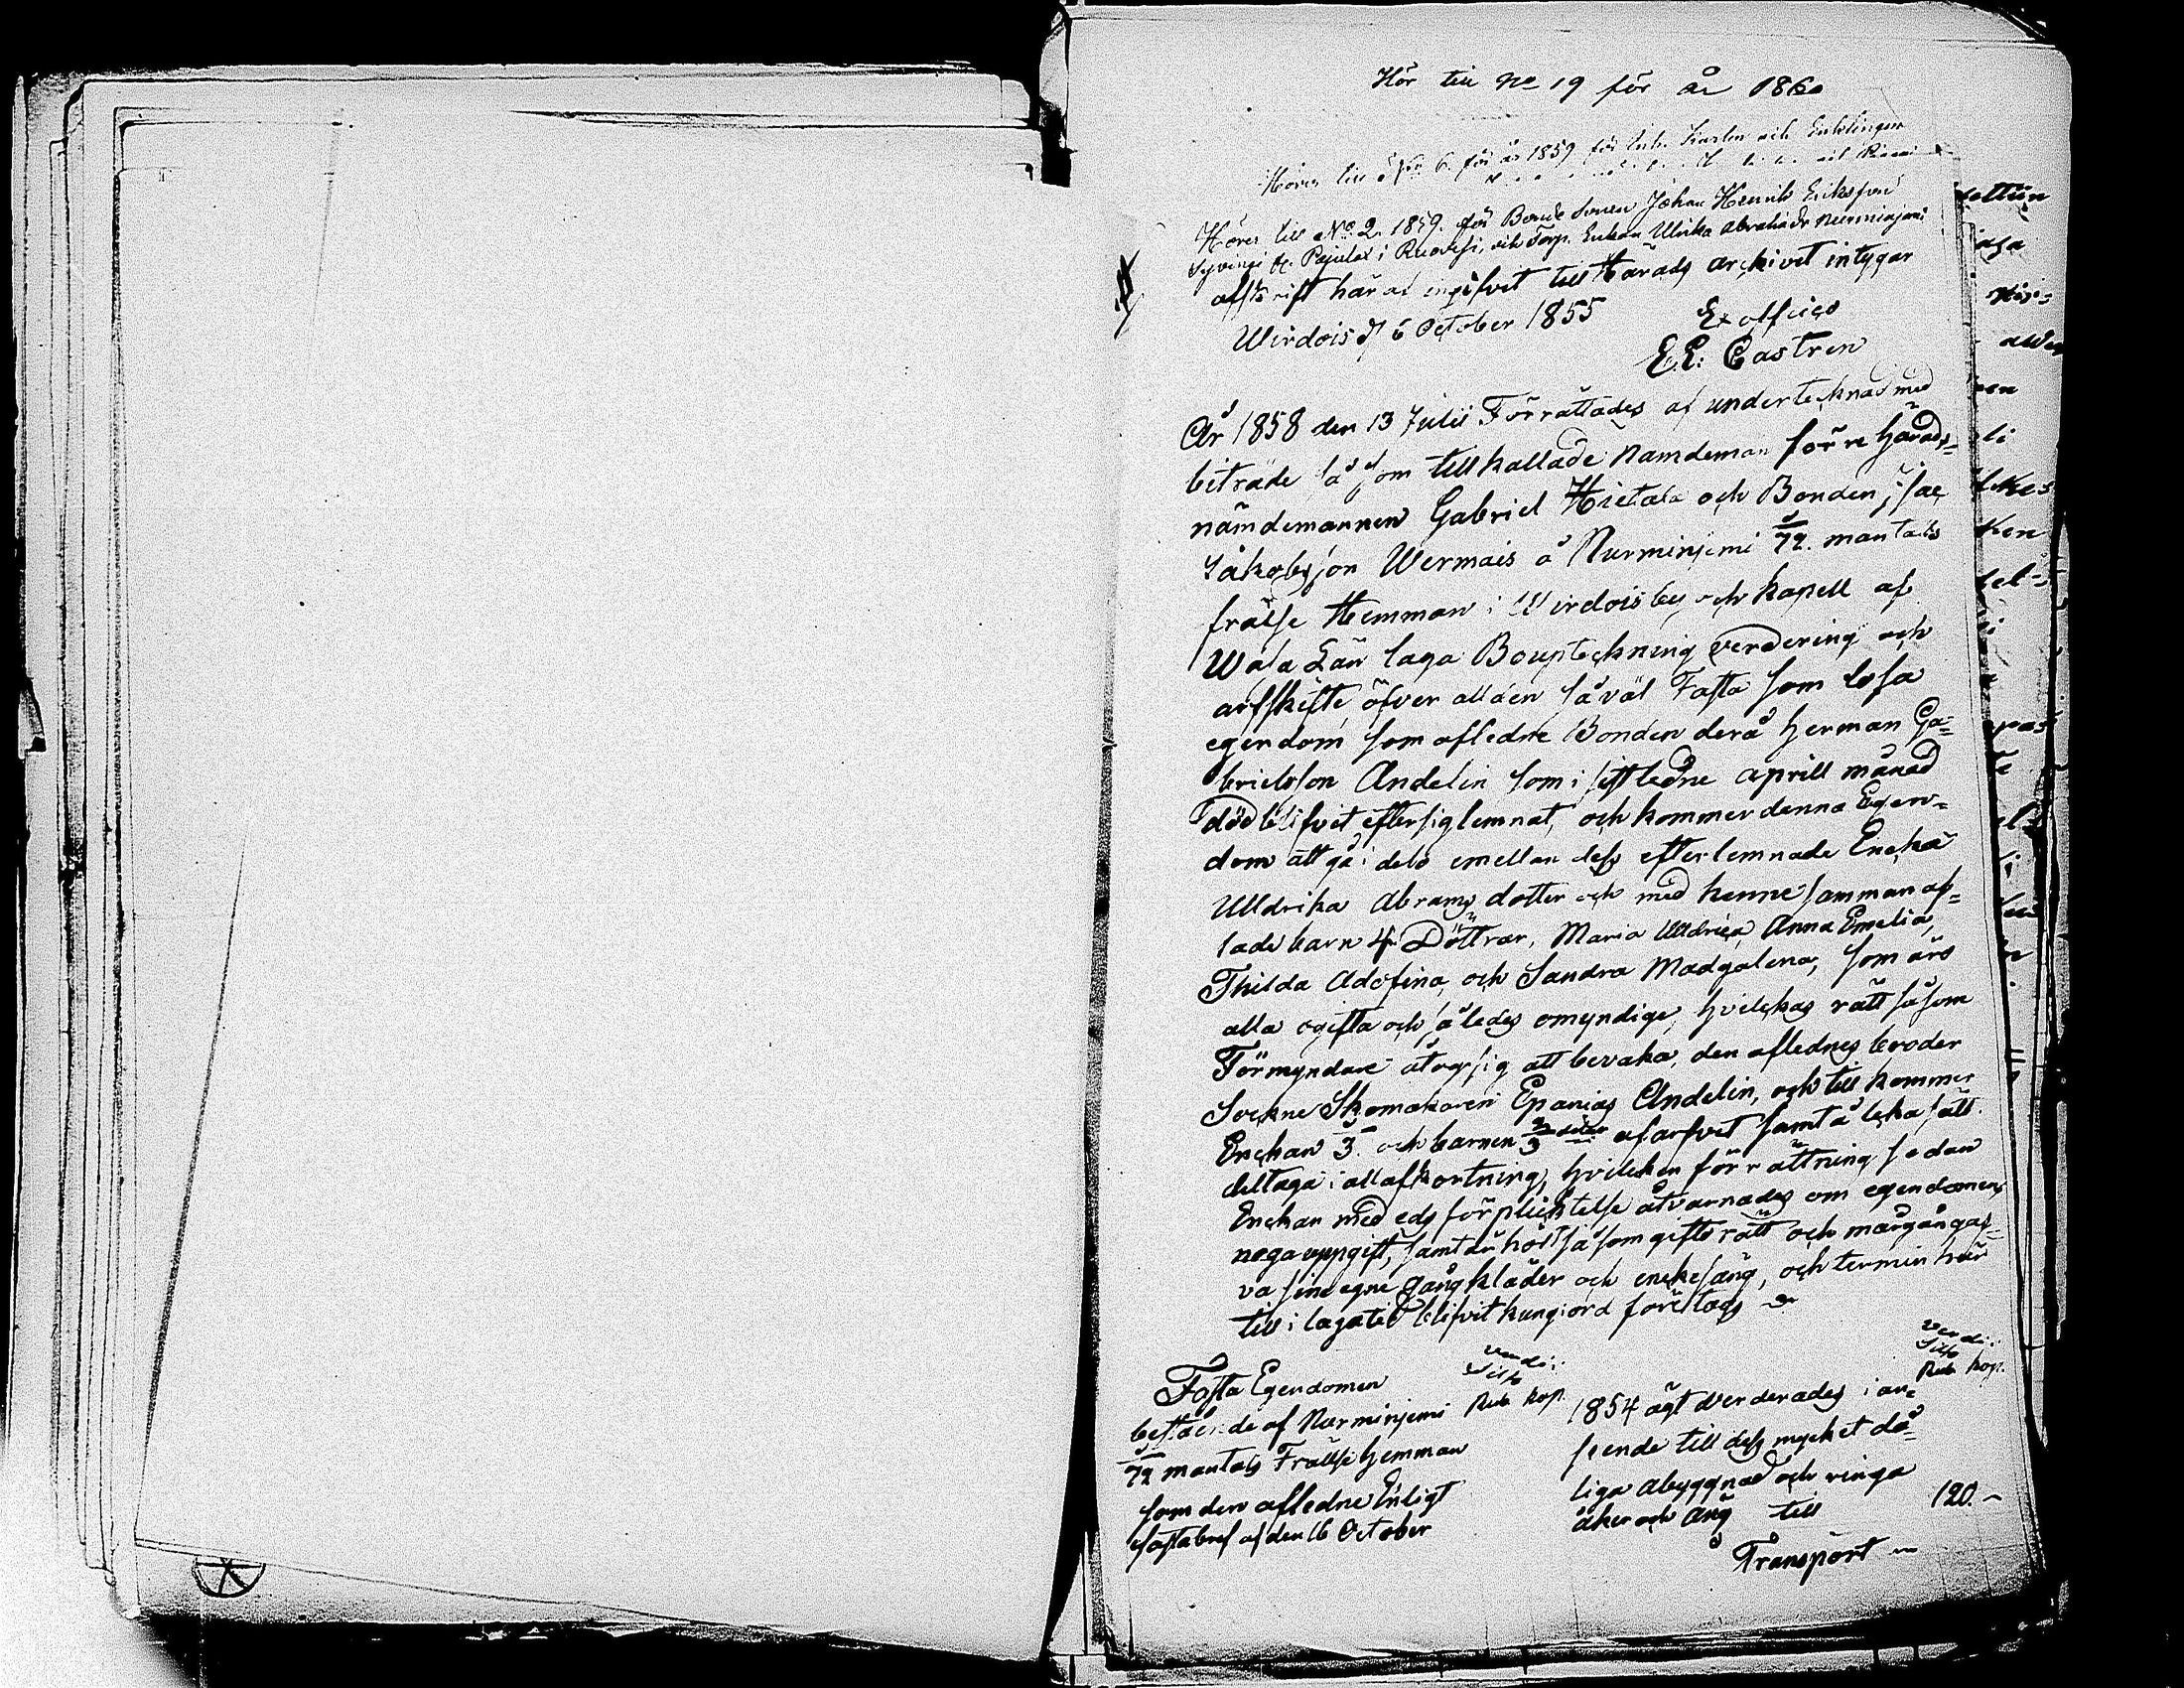 Hör till No 19 för år 1860
Hörer till No 6. för år 1859 för Enk. och Enklingen
Hörer till No 2. 1859. för Bonde Sonen Johan Henrik Eriksson
i Ruovesi, och Torp. Enkan Ulrika Abrahadr Nurminjemi
afskrift häraf ingifvit till Härads archivet intygar
Wirdois d 6 October 1855 Ex officio
E. E. Castren
År 1858 den 13 Julii Förrättades af undertecknad med
biträde såsom tillkallade Nämdemän förre härads-
nämdemannen Gabriel Hietala och Bonden Isac
Jakobsson Wermais å Nurminjemi 5/72 mantals
frälse Hemman i Wirdois by och kapell af
Wasa Län laga Boupteckning verdering och
arfskifte öfver all den såväl Fasta som lösa
egendom som afledne Bonden derå Herman Ga-
brielsson Andelin som i sistledne aprill månad
död blifvit efter sig lemnat, och kommer denna Egen-
dom att gå i delo emellan dess efterlemnade Encka
Ulldrika Abrams dotter och med henne samman af-
lade barn 4 Döttrar, Maria Ulldrica, Anna Emelia,
Thilda Adofina och Sandra Madgalena, som äro
alla ogifta och således omyndige, hvilckas rätt såsom
Förmyndare åtog sig att bevaka, den aflednes broder
Sockne Skomakaren Epanias Andelin, och till kommer
Enckan 1/3 och barnen 2/3 delar af arfvet samt å licka sätt
deltaga i all afkortning, hvilcken förrättning sedan
Enckan med eds förplicktelse åtvarnades om egendomens
noga uppgift, samt såsom gifto rätt och margångåf-
va sine egne gångkläder och enckesäng, och termin här
till i laga tid blifvit kungiord företags
Fasta Egendomen
bestående af Nurminjemi
5/72 mantals Frällse hemman
som den afledne Enligt
fastabref af den 16 October
Verdi:
Silf
Rub kop.
1854 ägt verderades i an-
seende till dess mycket då-
liga åbyggnad och ringa
åker och äng till
Verdi:
Silf
Rub kop.
120. –
Transport